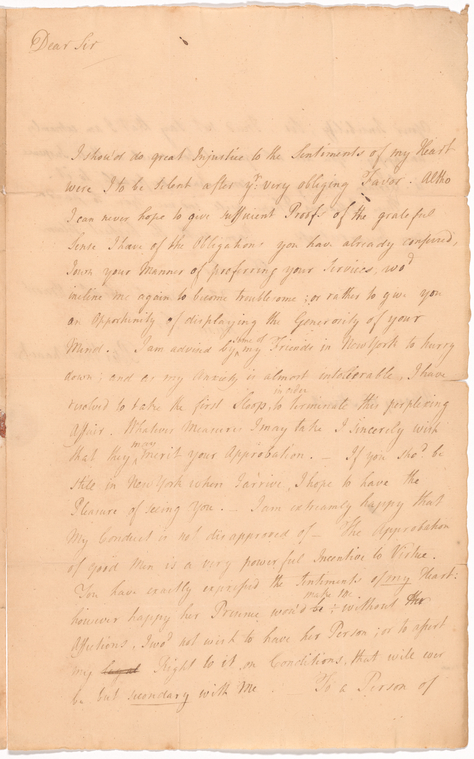 Dear Sir
I shou'd do great Injustice to the Sentiments of my Heart
were I to be silent after yr. very obliging Favor. Altho
I can never hope to give sufficient Proofs of the grateful
Sense I have of the Obligations you have already confered,
I own your Manner of proferring your Services, wod.
incline me again to become troublesome; or rather to give you
an Opportunity of displaying the Generosity of your
Mind. I am advised by some of my Friends in New York to hurry
down; and as my Anxiety is almost intollerable, I have
resolved to take the first Sloop, in order to terminate this perplexing
Affair. Whatever Measures I may take I sincerely wish
that they may merit your Approbation. — If you shod. be
still in New York when I arrive, I hope to have the
Pleasure of seeing you. — I am extreamly happy that
my Conduct is not disapproved of — The Approbation
of good Men is a very powerful Incentive to Virtue.
You have exactly expressed the Sentiments of my Heart:
however happy her Presence wou'd make me; without the
Affections, I wod. not wish to have her Person; or to assert
my Right to it, on Conditions, that will ever
be but secondary with me. To a Person of